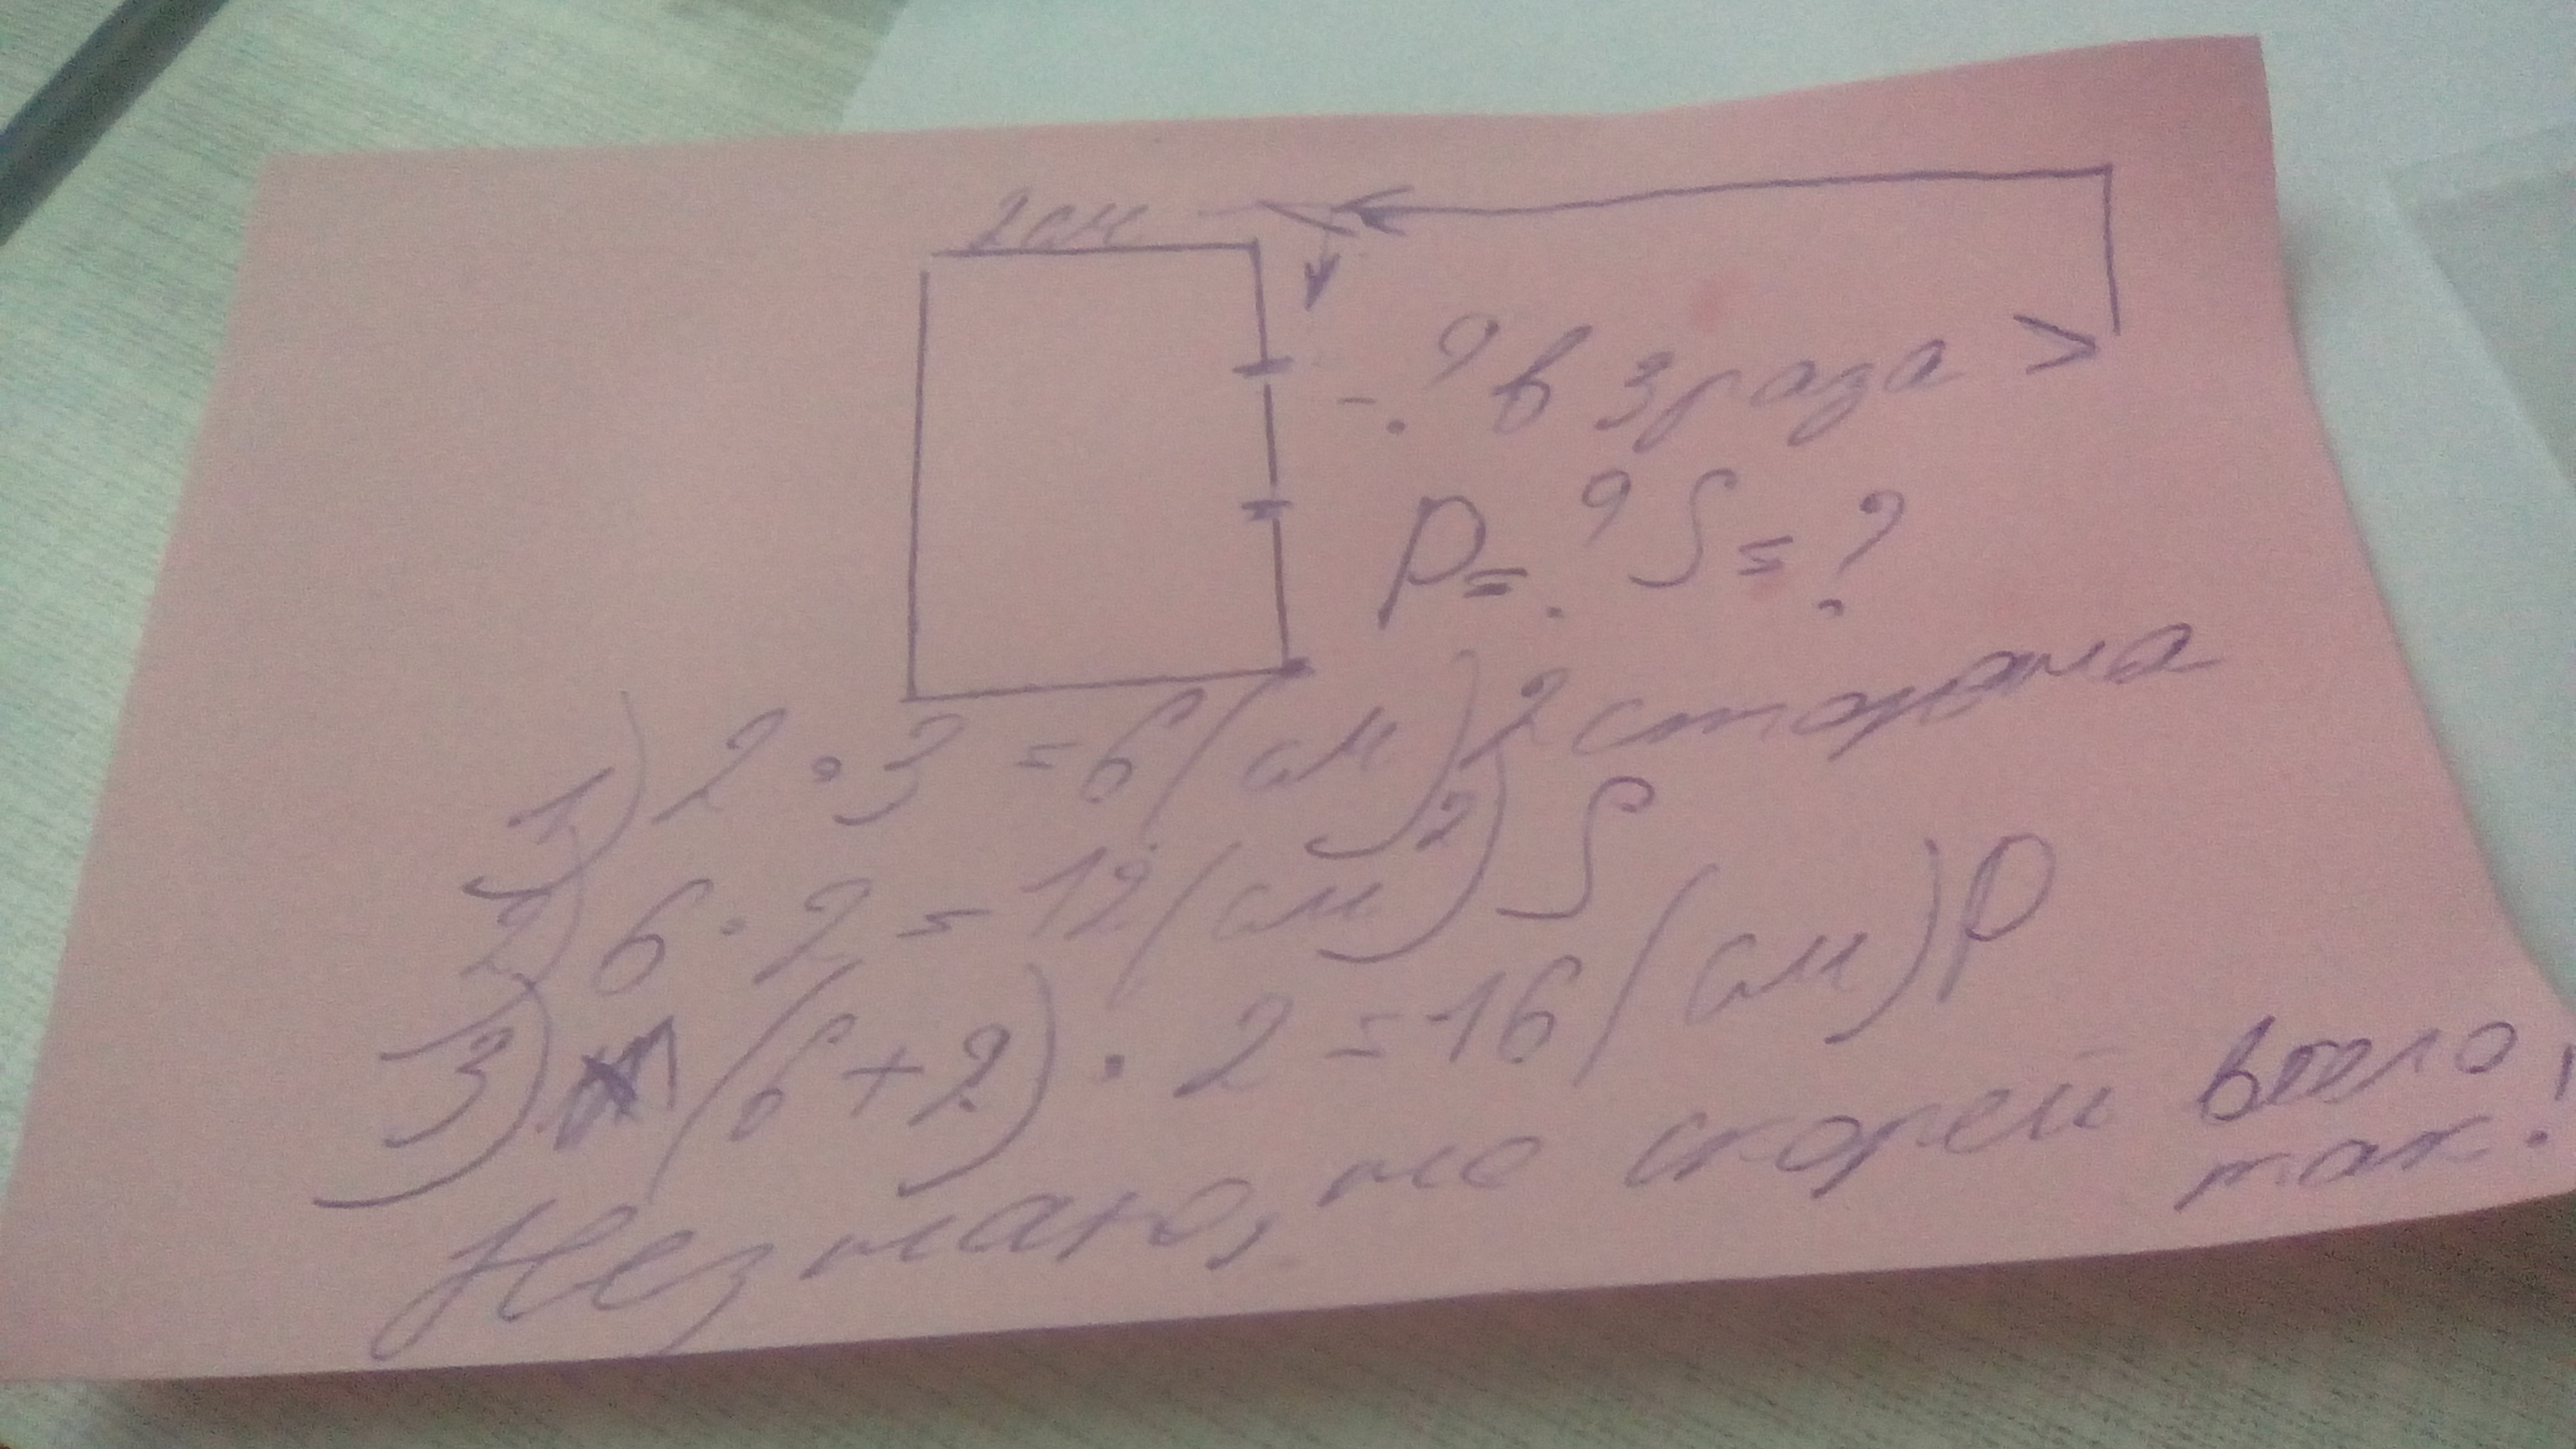 2 см
- ? в 3 раза >
P = ? S = ?
1) 2 · 3 = 6 (см) 2 сторона
2) 6 · 2 = 12 (см²) S
3) (6 + 2) · 2 = 16 (см) P
Незнаю, но скорей всего
так!